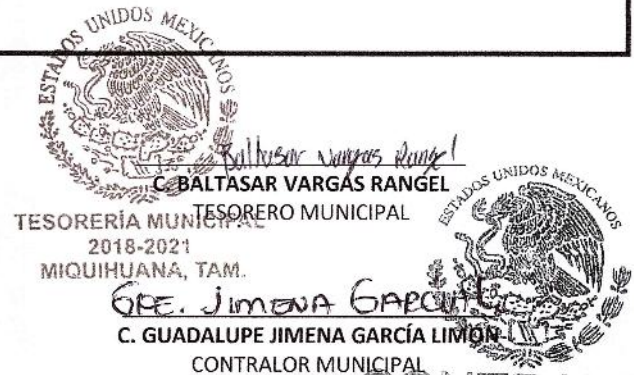 ESTADOS UNIDOS MEXICANOS
Baltasar Vargas Rangel
C. BALTASAR VARGAS RANGEL
TESORERO MUNICIPAL
TESORERÍA MUNICIPAL
2018-2021
MIQUIHUANA, TAM.
ESTADOS UNIDOS MEXICANOS
GPE. JIMENA GARCIA L.
C. GUADALUPE JIMENA GARCÍA LIMÓN
CONTRALOR MUNICIPAL